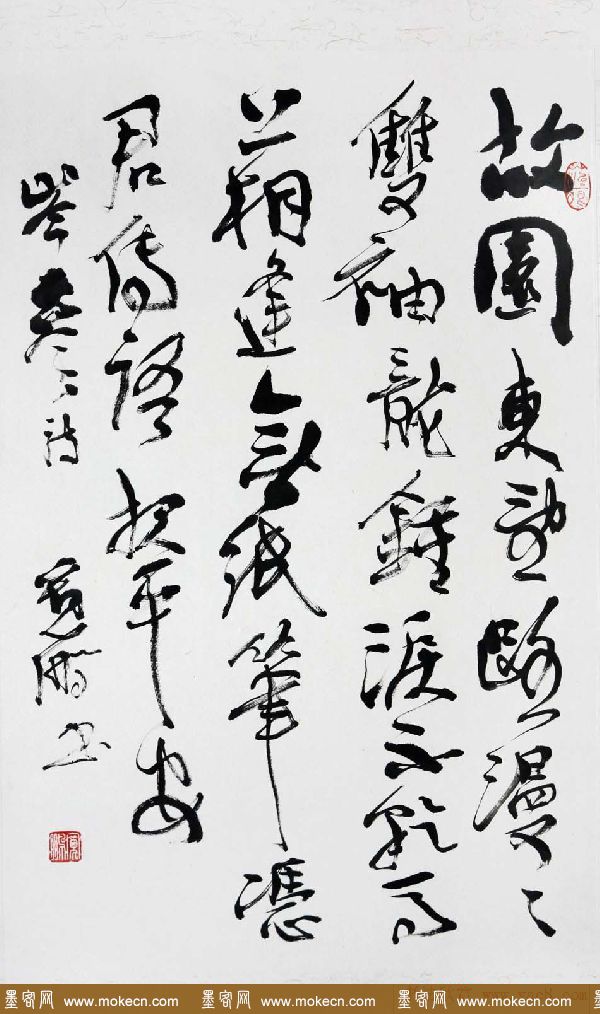 故園東望路漫〻
雙袖龍鍾淚不乾馬
上相逢無紙筆憑
君傳語報平安
岑參詩 鵬書
墨客网 www.mokecn.com 墨客网 www.mokecn.com 墨客网 www.mokecn.com